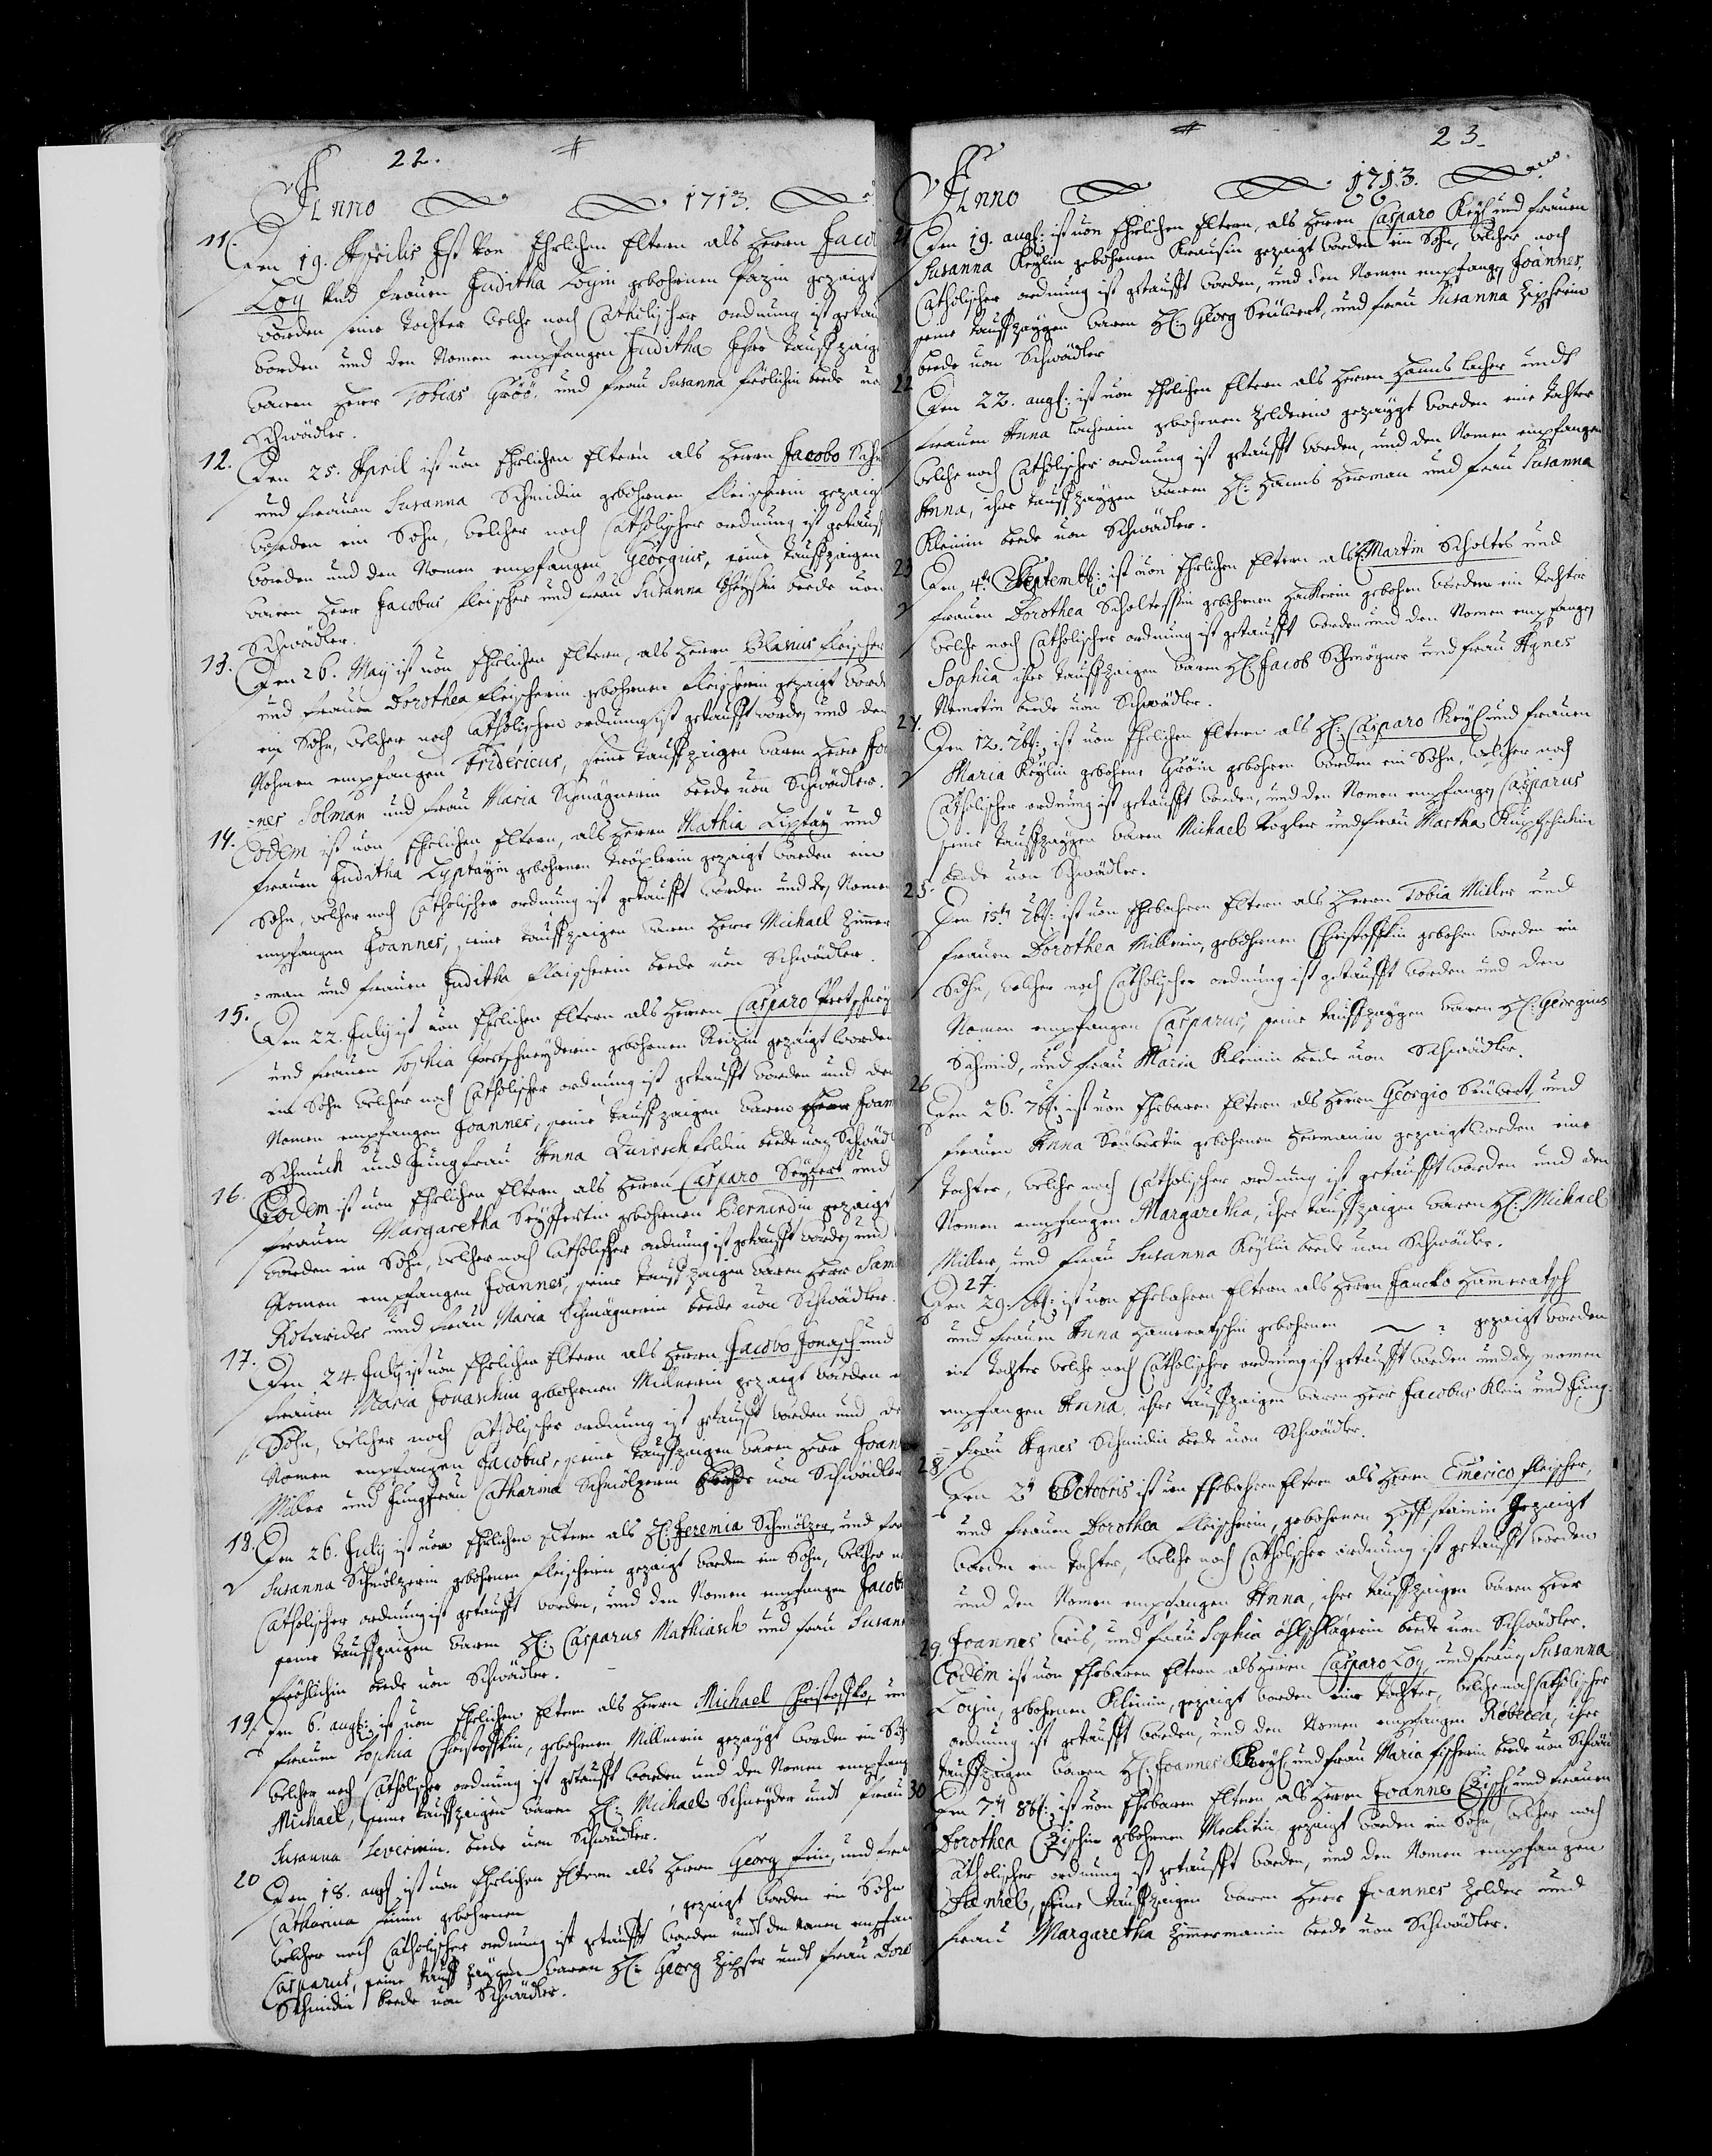 22.
Anno 1713.
11. Den 19. Aprilis Ist von Ehrlichen Eltern als Herrn Jaco
Loy und frauen Juditha Loyin gebohrnen gezaigt
worden eine Tochter welche nach Catholischer ordnung ist getau
worden und den Namen empfangen Juditha Ihre Tauffzaig
waren Herr Tobias Gröö. und frau Susanna frölichin beede vo
Schwädler.
12. Den 25. April ist von Ehrlichen Eltern als Herrn Jacobo Sch
und frauen Susanna Schmidin gebohrnen fleischerin gezaigt
worden ein Sohn, welcher nach Catholischer ordnung ist getauff
worden und den Namen empfangen Georgius, seine Tauffzaigen
waren Herr Jacobus fleischer und frau Susanna beede von
Schwädler.
13. Den 26. May ist von Ehrlichen Eltern, als Herrn Blasius fleischer
und frauen Dorothea fleischerin gebohrnen fleischerin gezaigt word
ein Sohn, welcher nach Catholischen ordnung ist getaufft worden und den
Nahmen empfangen Fridericus, seine Tauffzaigen waren Herr Joa
:nes Solman und frau Maria Schmägnerin beede von Schwädler.
14. Eodem ist von Ehrlichen Eltern, als Herrn Mathia Liptay und
frauen Juditha Lyptayin gebohrnen Tröxlerin gezaigt worden ein
Sohn, welcher nach Catholischer ordnung ist getaufft worden und den Namen
empfangen Joannes, seine Tauffzaigen waren Herr Michael Zimer
:man und frauen Juditha flaischerin beede von Schwädler.
15. Den 22. July ist von Ehrlichen Eltern als Herrn Casparo Pretschney
und frauen Sophia Pretschneyderin gebohrnen Reizin gezaigt worden
ein Sohn welcher nach Catholischer ordnung ist getaufft worden und den
Namen empfangen Joannes, seine Tauffzaigen waren Herr Joan
Schmuck und Jungfrau Anna Quirschfeldin beede von Schwädl
16. Eodem ist von Ehrlichen Eltern als Herrn Casparo Seyfert und
frauen Margaretha Seyffertin gebohrnen Bernardin gezaigt
worden ein Sohn, welcher nach Catholischer ordnung ist getaufft worden und
Namen empfangen Joannes, seine Tauffzaigen waren Herr Sam
Kotarides und frau Maria Schmägnerin beede von Schwädler.
17. Den 24. July ist von Ehrlichen Eltern als Herrn Jacobo Jonasch und
frauen Maria Jonaschin gebohrnen Millnerin gezaigt worden
Sohn, welcher nach Catholischer ordnung ist getaufft worden und de
Namen empfangen Jacobus, seine Tauffzaigen waren Herr Joan
Miller und Jungfrau Catharina Schmölzerin beede von Schwädler
18. Den 26. July ist von Ehrlichen Eltern als H: Jeremia Schmölzer, und fra
Susanna Schmölzerin gebohrnen fleischerin gezaigt worden ein Sohn, welcher n
Catholischer ordnung ist getaufft worden, und den Namen empfangen Jacob
seine Tauffzaigen waren H: Casparus Mathiasch und frau Susan
fröhlichin beede von Schwädler.
19. Den 6. aug: ist von Ehrlichen Eltern als Herrn Michael Christoffko, un
frauen Sophia Christoffkin, gebohrnen Millnerin gezaigt worden ein So
welcher nach Catholischer ordnung ist getaufft worden und den Namen empfang
Michael, seine Tauffzaigen waren H: Michael Schneyder undt frau
Susanna Severinin. beede von Schwädler.
20 Den 18. aug ist von Ehrlichen Eltern als Herrn Georg fein, und fra
Catharina feinin gebohrnen , gezaigt worden ein Sohn
welcher nach Catholischer ordnung ist getaufft worden undt den namen empfan
Casparus, seine Tauff zaigen waren H: Georg Zipser undt frau Doro
Schmidin beede von Schwädler.
23.
Anno 1713.
21 Den 19. aug: ist von Ehrlichen Eltern, als Herrn Casparo Keyl und frauen
Susanna Keylin gebohrnen Krausin gezaigt worden ein Sohn, welcher nach
Catholischer ordnung ist getaufft worden, und den Namen empfangen Joannes,
seine Tauffzaygen waren H: Georg Seubert, und frau Susanna Zipserin
beede von Schwädler
22 Den 22. aug: ist von Ehrlichen Eltern als Herrn Hanns Lacher undt
frauen Anna Lacherin gebohrnen Zelderin gezaygt worden eine Tochter
welche nach Catholischer ordnung ist getaufft worden, und den Namen empfangen
Anna, ihre Tauffzaygen waren H: Hanns Herman und frau Susanna
Kleinin beede von Schwädler.
23 Den 4t Septemb: ist von Ehrlichen Eltern als H: Martin Scholtes und
frauen Dorothea Scholtessin gebohrnen Hackerin gebohren worden ein Tochter
welche nach Catholischer ordnung ist getaufft worden und den Namen empfangen
Sophia ihre Tauffzaigen waren H: Jacob Schmögner und frau Agnes
beede von Schwädler.
24. Den 12. 7br: ist von Ehrlichen Eltern als H: Casparo Keyl und frauen
Maria Keylin gebohrne Gröin gebohren worden ein Sohn, welcher nach
Catholischer ordnung ist getaufft worden, und den Namen empfangen Casparus
seine Tauffzaygen waren Michael Kogler und frau Martha
beede von Schwädler.
25. Den 15t 7br: ist von Ehrbahren Eltern als Herrn Tobia Miller und
frauen Dorothea Millerin, gebohrnen Christoffkin gebohren worden ein
Sohn, welcher nach Catholischer ordnung ist getaufft worden und den
Namen empfangen Casparus, seine Tauffzaygen waren H: Georgius
Schmid, und frau Maria Kleinin beede von Schwädler.
26 Den 26. 7br: ist von Ehrbaren Eltern als Herrn Georgio Seubert, und
frauen Anna Seubertin gebohrnen Hermanin gezaigt worden eine
Tochter, welche nach Catholischer ordnung ist getaufft worden und den
Namen empfangen Margaretha, ihre Tauffzaigen waren H: Michael
Miller, und frau Susanna Keylin beede von Schwädler.
27. Den 29. 7br: ist von Ehrbahren Eltern als Herrn Jancko Hameratsch
und frauen Anna Hameratschin gebohrnen ? gezaigt worden
ein Tochter welche nach Catholischer ordnung ist getaufft worden und den namen
empfangen Anna, ihre Tauffzaigen waren Herr Jacobus Klein und Jung:
frau Agnes Schmidin beede von Schwädler.
28 Den 2t Octobris ist von Ehrbahren Eltern als Herrn Emerico fleischer,
und frauen Dorothea fleischerin, gebohrnen Hoffstainin gezaigt
worden ein Tochter, welche nach Catholischer ordnung ist getaufft worden
und den Namen empfangen Anna, ihre Tauffzaigen waren Herr
Joannes und frau Sophia öhlschlägerin beede von Schwädler.
29 Eodem ist von Ehrbaren Eltern als Herrn Casparo Loy und frauen Susanna
Loyin, gebohrnen Kleinin, gezaigt worden eine Tochter, welche nach Catholischer
ordnung ist getaufft worden, und den Namen empfangen Rebecca, ihre
Tauffzaigen waren H: Joannes Keyl und frau Maria fischerin beede von Schwäd
30 Den 7t 8br: ist von Ehrbaren Eltern als Herrn Joanne Czisch und frauen
Dorothea Czischin gebohrnen Meckitin gezaigt worden ein Sohn, welcher nach
Catholischer ordnung ist getaufft worden, und den Namen empfangen
Daniel, seine Tauffzaigen waren Herr Joannes Zelder und
frau Margaretha Zimmermanin beede von Schwädler.